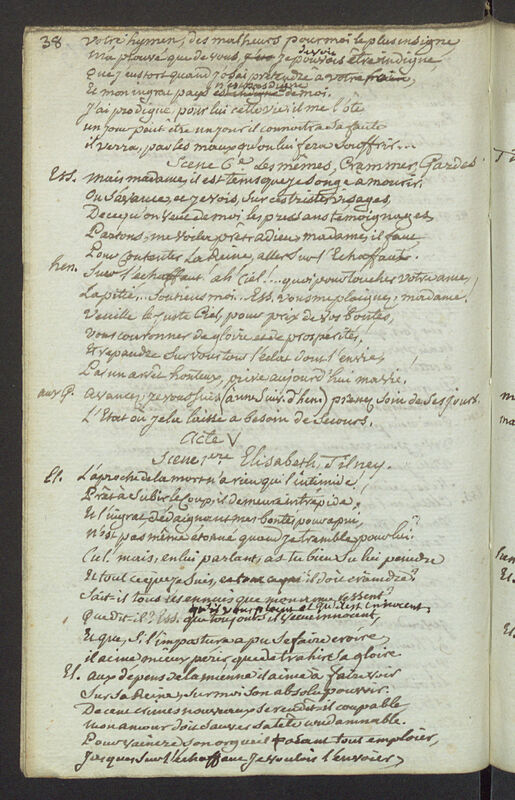 38 Votre hymen, des malheurs pour moi le plus insigne
M'a prouvé que de vous je devois être indigne
Que j'eus tort quand j'osai prétendre à votre
Et mon ingrat pays n'est pas digne de moi.
J'ai prodigué, pour lui cette vie: il me l'ôte
un jour peut être un jour il connoitra sa faute
il verra, par les maux qu'on lui fera souffrir...
Scene 6e. Les mêmes, Crammer, Gardes.
Ess. Mais madame, il est tems que je songe à mourir.
On s'avance, et je vois, sur ces tristes visages
De ce qu'on veut de moi les pressans témoignages
Partons, me voilà prêt adieu madame, il faut
Pour contenter La Reine, aller sur l'Echaffaut.
hen. Sur l'échaffaut! ah Ciel!... quoi pour toucher votre ame,
La pitié... Soutiens moi.. Ess. vous me plaignez, madame.
Veuille le juste Ciel, pour prix de vos bontés,
Vous couronner de gloire et de prospérités,
Et répandre sur vous tout l'éclat dont l'envie,
Par un arrêt honteux, prive aujourd'hui ma vie.
aux G. avancez, je vous suis, (à une suiv. d'hen) prenez soin de ses jours.
L'Etat où je la laisse a besoin de secours.
Acte V
Scene 1ere Elisabeth, Tilney.
El. L'aproche de la mort n'a rien qui l'intimide,
Prêt à subir le coup, il demeure intrépide,
Et l'ingrat dédaignant mes bontés pour apui,
N'est pas même étonné quand je tremble pour lui!
Ciel! mais, en lui parlant, as tu bien su lui peindre
Et tout ce que je suis, il doit craindre?
Sait-il tous les ennuis que mon ame ressent?
Que dit-il? qu'il vous plaint et qu'il est innocent,
Et que, si l'imposture a pu se faire croire,
il aime mieux périr que de trahir sa gloire
El. aux dépens de la mienne il aime à faire voir
Sur sa Reine, sur moi son absolu pouvoir.
De cent crimes nouveaux se rendit il coupable,
mon amour doit sauver sa tête condamnable.
Pour vaincre son orgueil osant tout emploier,
Jusques sur l'échaffaut je voulois l'envoier,